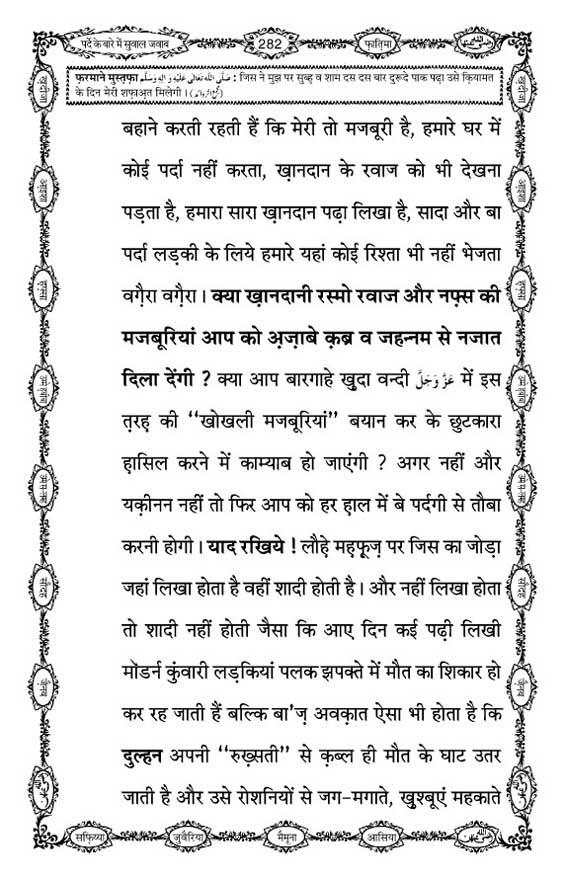 पर्दे के बारे में सुवाल जवाब
282
फ़ातिमा
फ़रमाने मुस्त़फ़ा صَلَّى اللهُ تَعَالٰى عَلَيْهِ وَاٰلِهٖ وَسَلَّم : जिस ने मुझ पर सुब्ह़ व शाम दस दस बार दुरूदे पाक पढ़ा उसे क़ियामत
के दिन मेरी शफ़ाअ़त मिलेगी ।
बहाने करती रहती हैं कि मेरी तो मजबूरी है, हमारे घर में
कोई पर्दा नहीं करता, ख़ानदान के रवाज को भी देखना
पड़ता है, हमारा सारा ख़ानदान पढ़ा लिखा है, सादा और बा
पर्दा लड़की के लिये हमारे यहां कोई रिश्ता भी नहीं भेजता
वग़ैरा वग़ैरा । क्या ख़ानदानी रस्मो रवाज और नफ़्स की
मजबूरियां आप को अ़ज़ाबे क़ब्र व जहन्नम से नजात
दिला देंगी ? क्या आप बारगाहे खुदा वन्दी عَزَّ وَجَلَّ में इस
त़रह़ की ‘‘खोखली मजबूरियां’’ बयान कर के छुटकारा
ह़ासिल करने में काम्याब हो जाएंगी ? अगर नहीं और
यक़ीनन नहीं तो फिर आप को हर ह़ाल में बे पर्दगी से तौबा
करनी होगी । याद रखिये ! लौह़े मह़फ़ूज़ पर जिस का जोड़ा
जहां लिखा होता है वहीं शादी होती है । और नहीं लिखा होता
तो शादी नहीं होती जैसा कि आए दिन कई पढ़ी लिखी
मॉडर्न कुंवारी लड़कियां पलक झपक्ते में मौत का शिकार हो
कर रह जाती हैं बल्कि बा'ज़ अवक़ात ऐसा भी होता है कि
दुल्हन अपनी ‘‘रुख़्सती’’ से क़ब्ल ही मौत के घाट उतर
जाती है और उसे रोशनियों से जग-मगाते, खुश्बूएं महकाते
सफ़िय्या
जुवैरिया
मैमूना
आसिया